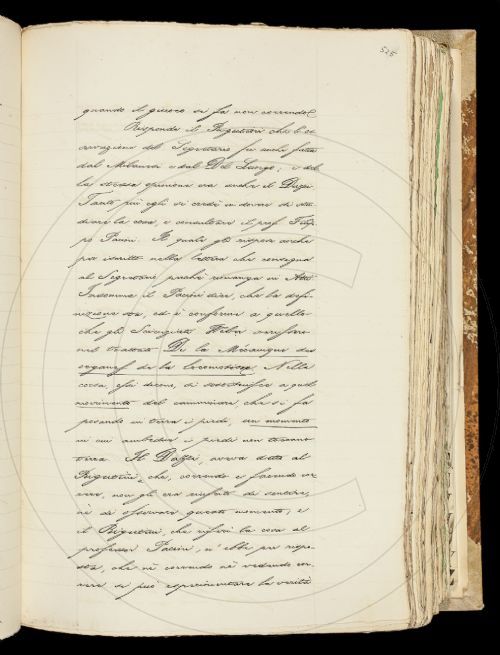 525
quando il giuoco si fa non correndo.
Risponde il Rigutini che l'os
servazione del Segretario fu anche fatta
dal Milanesi e dal Del Lungo; e del
la stessa opinione era anche il Dazzi.
Tanto più egli si credè in dovere di stu
diare la cosa, e consultare il prof. Filip
po Pacini. Il quale gli rispose anche
per iscritto nella lettera che consegna
al Segretario perchè rimanga in Atti.
Insomma il Pacini dice, che la defi-
nizione sta, ed è conforme a quella
che gli Weber
nel trattato De la Mécanique des
organes de la locomotion. Nella
corsa, essi dicono, si sostituisce a quel
movimento del camminare, che si fa
posando in terra i piedi, un momento
in cui ambedue i piedi non toccano
terra. Il Dazzi, aveva detto al
Rigutini, che, correndo e facendo cor
rere, non gli era riuscito di sentire,
nè di osservare questo momento; e
il Rigutini, che riferì la cosa al
professor Pacini, n'ebbe per rispo-
sta, che nè correndo nè vedendo cor
rere si può esperimentare la verità